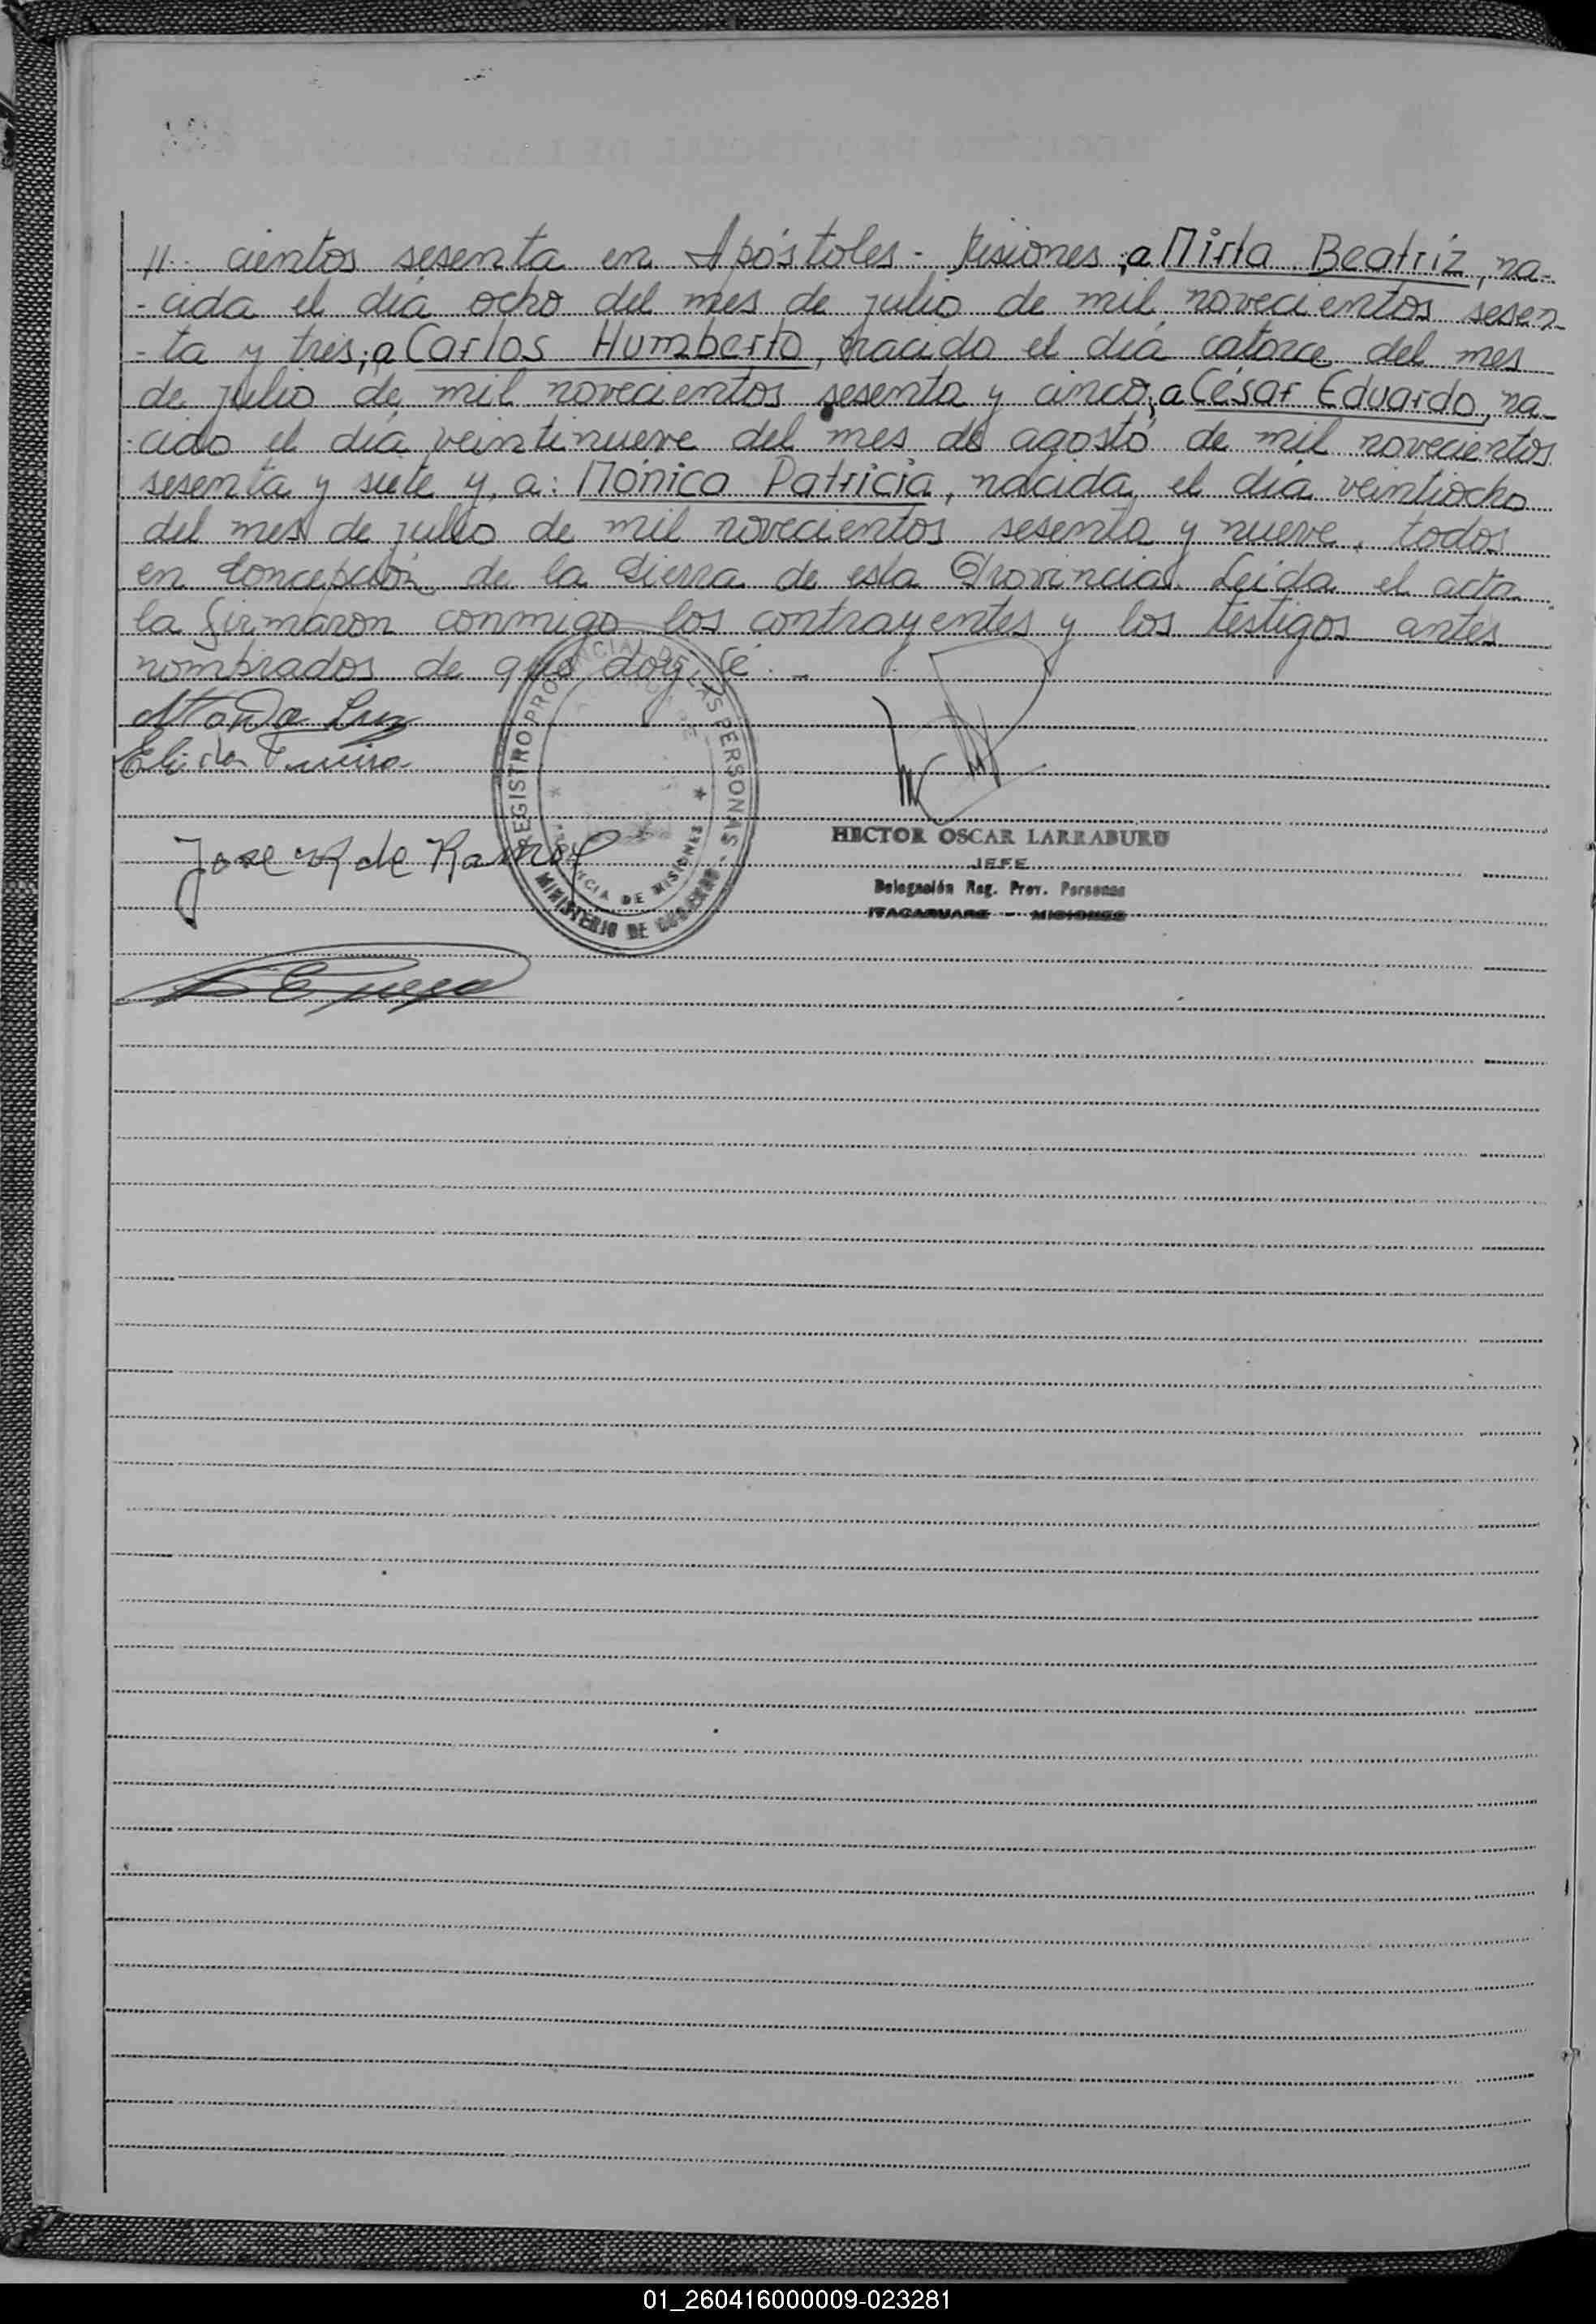 //.. cientos sesenta en Apóstoles - Misiones; a Mirta Beatríz, na-
- cida el día ocho del mes de julio de mil novecientos sesen-
- ta y tres; a Carlos Humberto, nacido el día catorce del mes
de julio de mil novecientos sesenta y cinco; a César Eduardo, na-
- cido el día veintinueve del mes de agosto de mil novecientos
sesenta y siete y, a: Mónica Patricia, nacida el día veintiocho
del mes de julio de mil novecientos sesenta y nueve, todos
en Concepción de la Sierra de esta Provincia. Leída el acta
la firmaron conmigo los contrayentes y los testigos antes
nombrados de que doy fé. -
Elida
Jose de Ramos
REGISTRO PROVINCIAL DE LAS PERSONAS
PROVINCIA DE MISIONES
MINISTERIO DE GOBIERNO
HECTOR OSCAR LARRABURU
JEFE
Delegación Reg. Prov. Personas
ITACARUARE - MISIONES
01_260416000009-023281